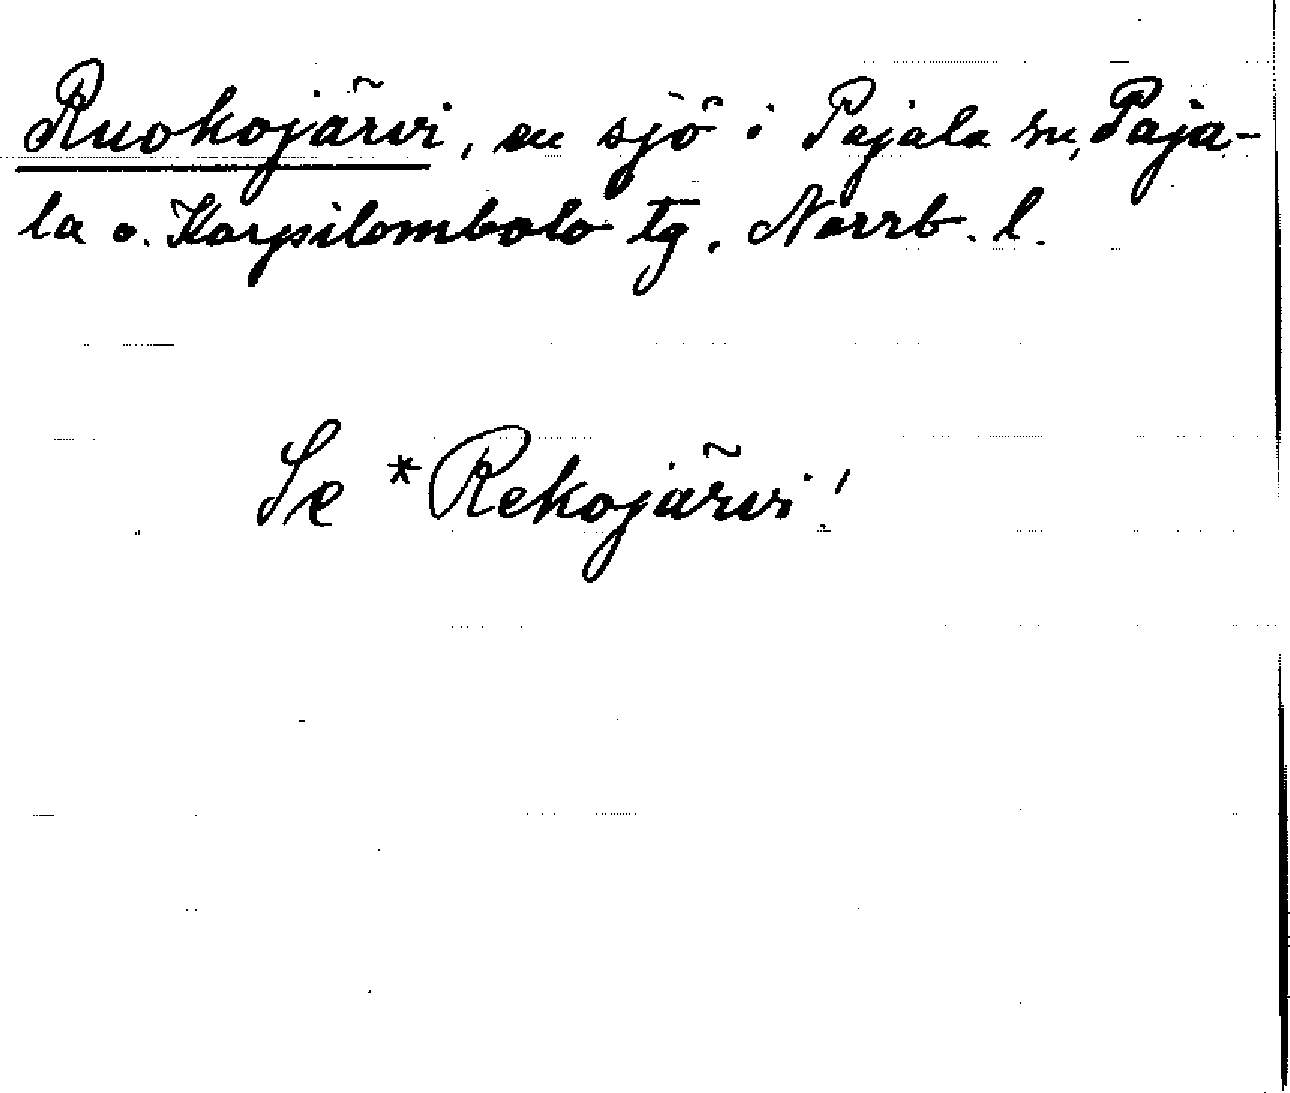 Ruokojärvi, en sjö i Pajala sn, Paja-
la o. Korpilombolo tg, Norrb. l.
Se *Rekojärvi!